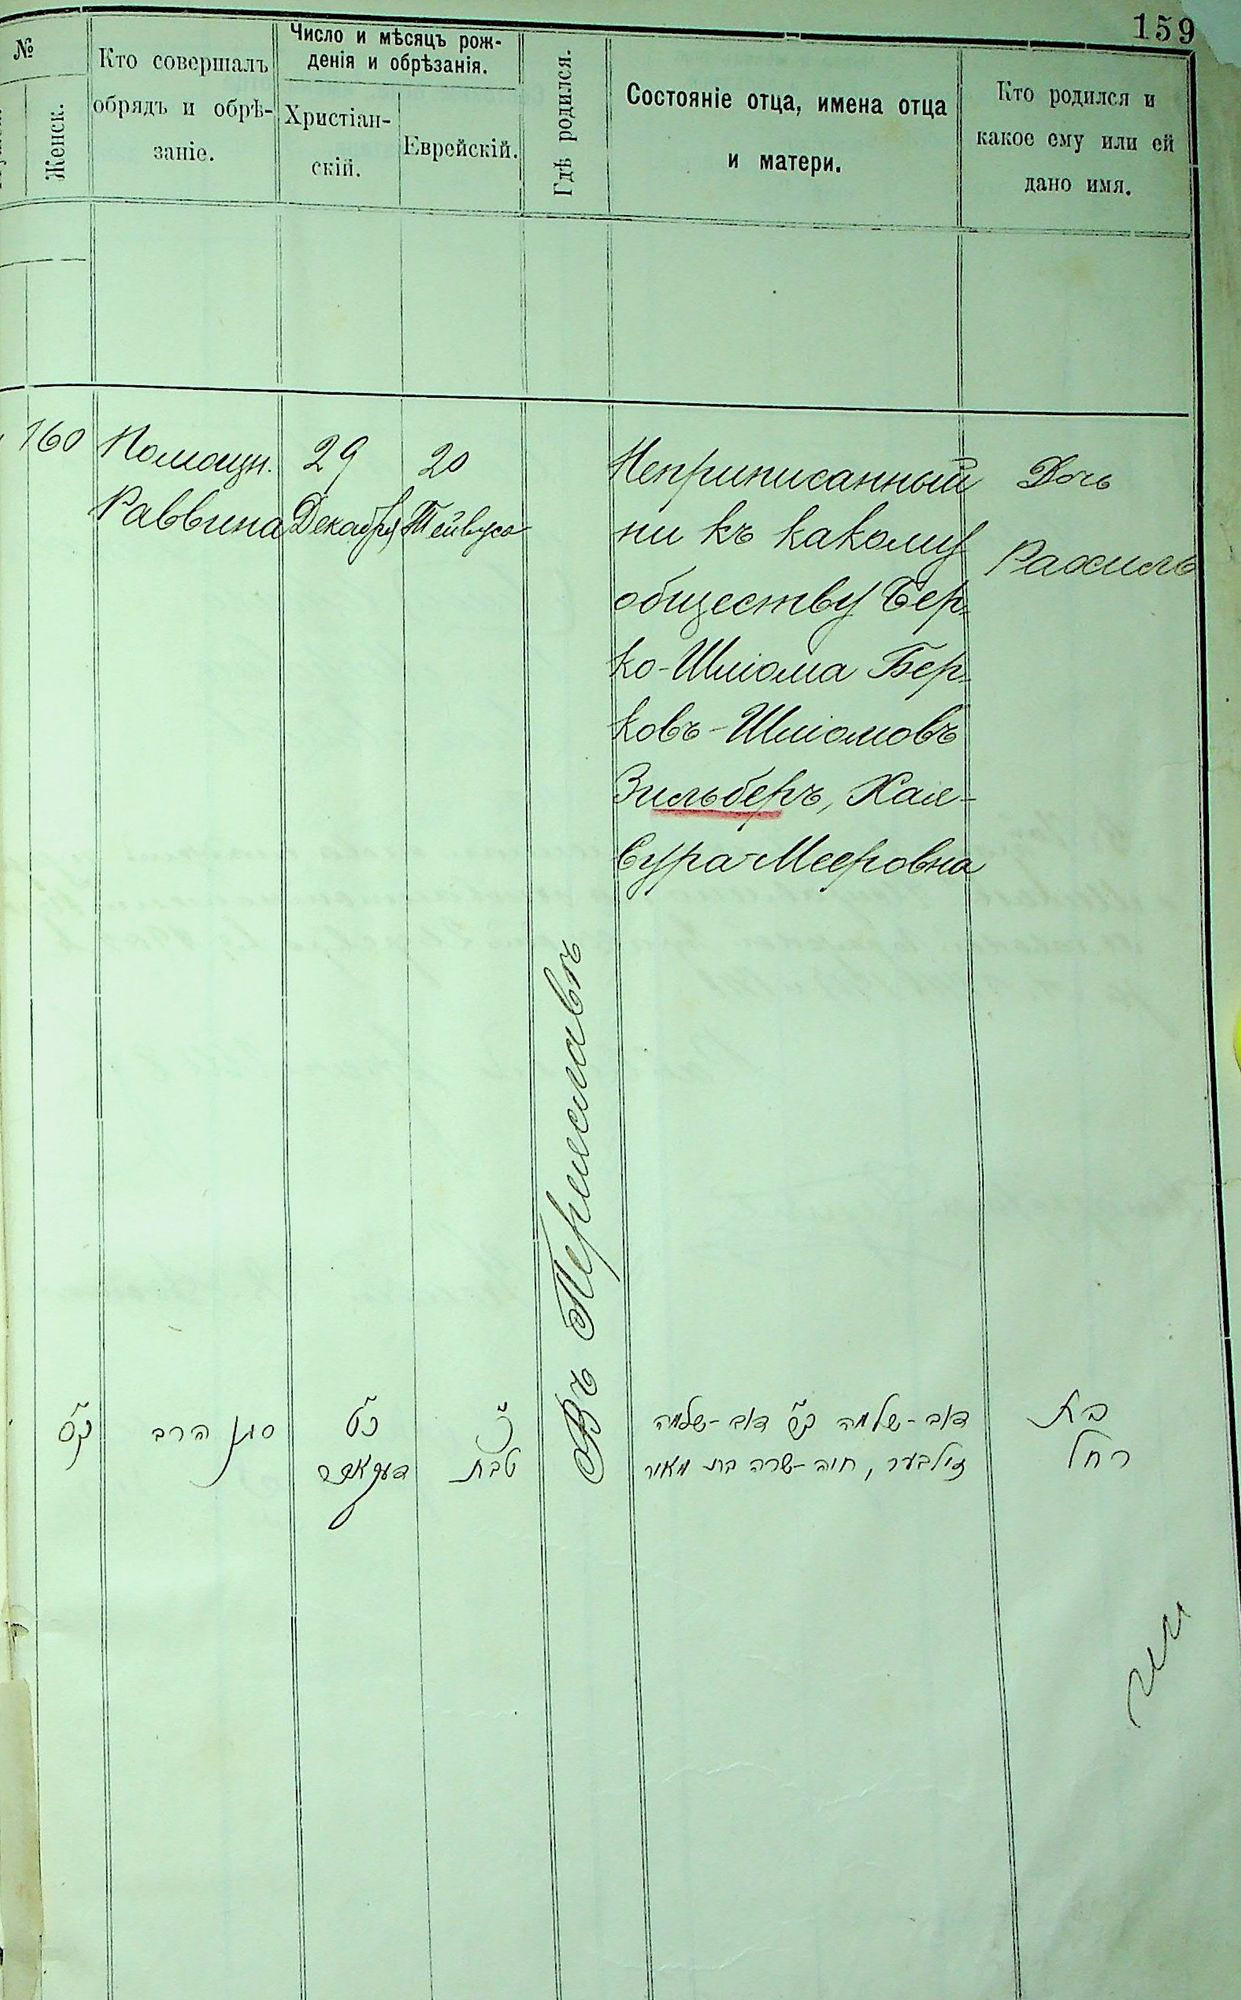 159
№
Женск.
Кто совершалъ
обрядъ и обрѣ-
заніе.
Число и мѣсяцъ рож-
денія и обрѣзанія.
Христіан-
скій.
Еврейскій.
Гдѣ родился.
Состояніе отца, имена отца
и матери.
Кто родился и
какое ему или ей
дано имя.
160
Помощн.
Раввина
29
Декабря
20
Тейвуса
Въ Переяславѣ
Неприписанный
ни къ какому
обществу Бер-
ко-Шліома Бер-
ковъ-Шліомовъ
Зильберъ, Хая-
Сура Мееровна
Дочь
Рахиль
קס
סגן הרב
כט
דעקאבר
כ
טבת
דוב-שלמה דוב-שלמה
זילבער, חיה-שרה בת מאיר
בת
רחל